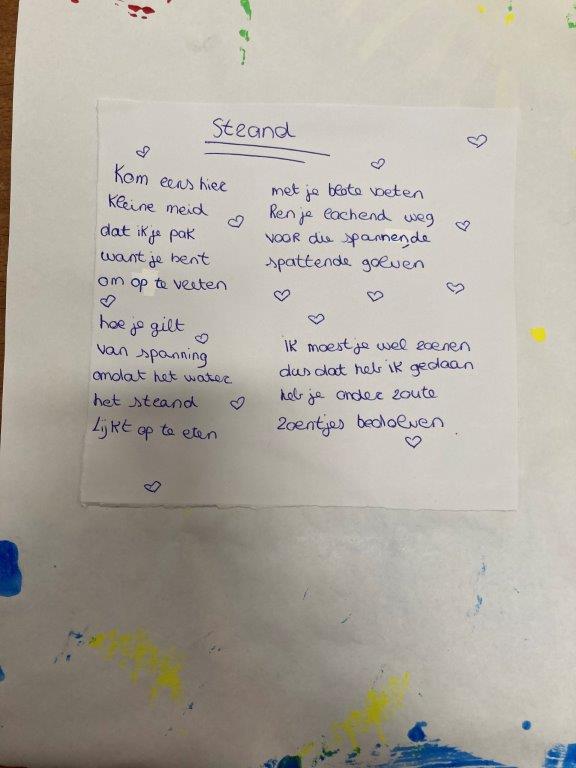 Strand
Kom eens hier
kleine meid
dat ik je pak
want je bent
om op te vreten
hoe je gilt
van spanning
omdat het water
het strand
Lijkt op te eten
met je blote voeten
Ren je lachend weg
VOOR die spannende
spattende golven
IK moest je wel zoenen
dus dat heb ik gedaan
heb je onder zoute
zoentjes bedolven.